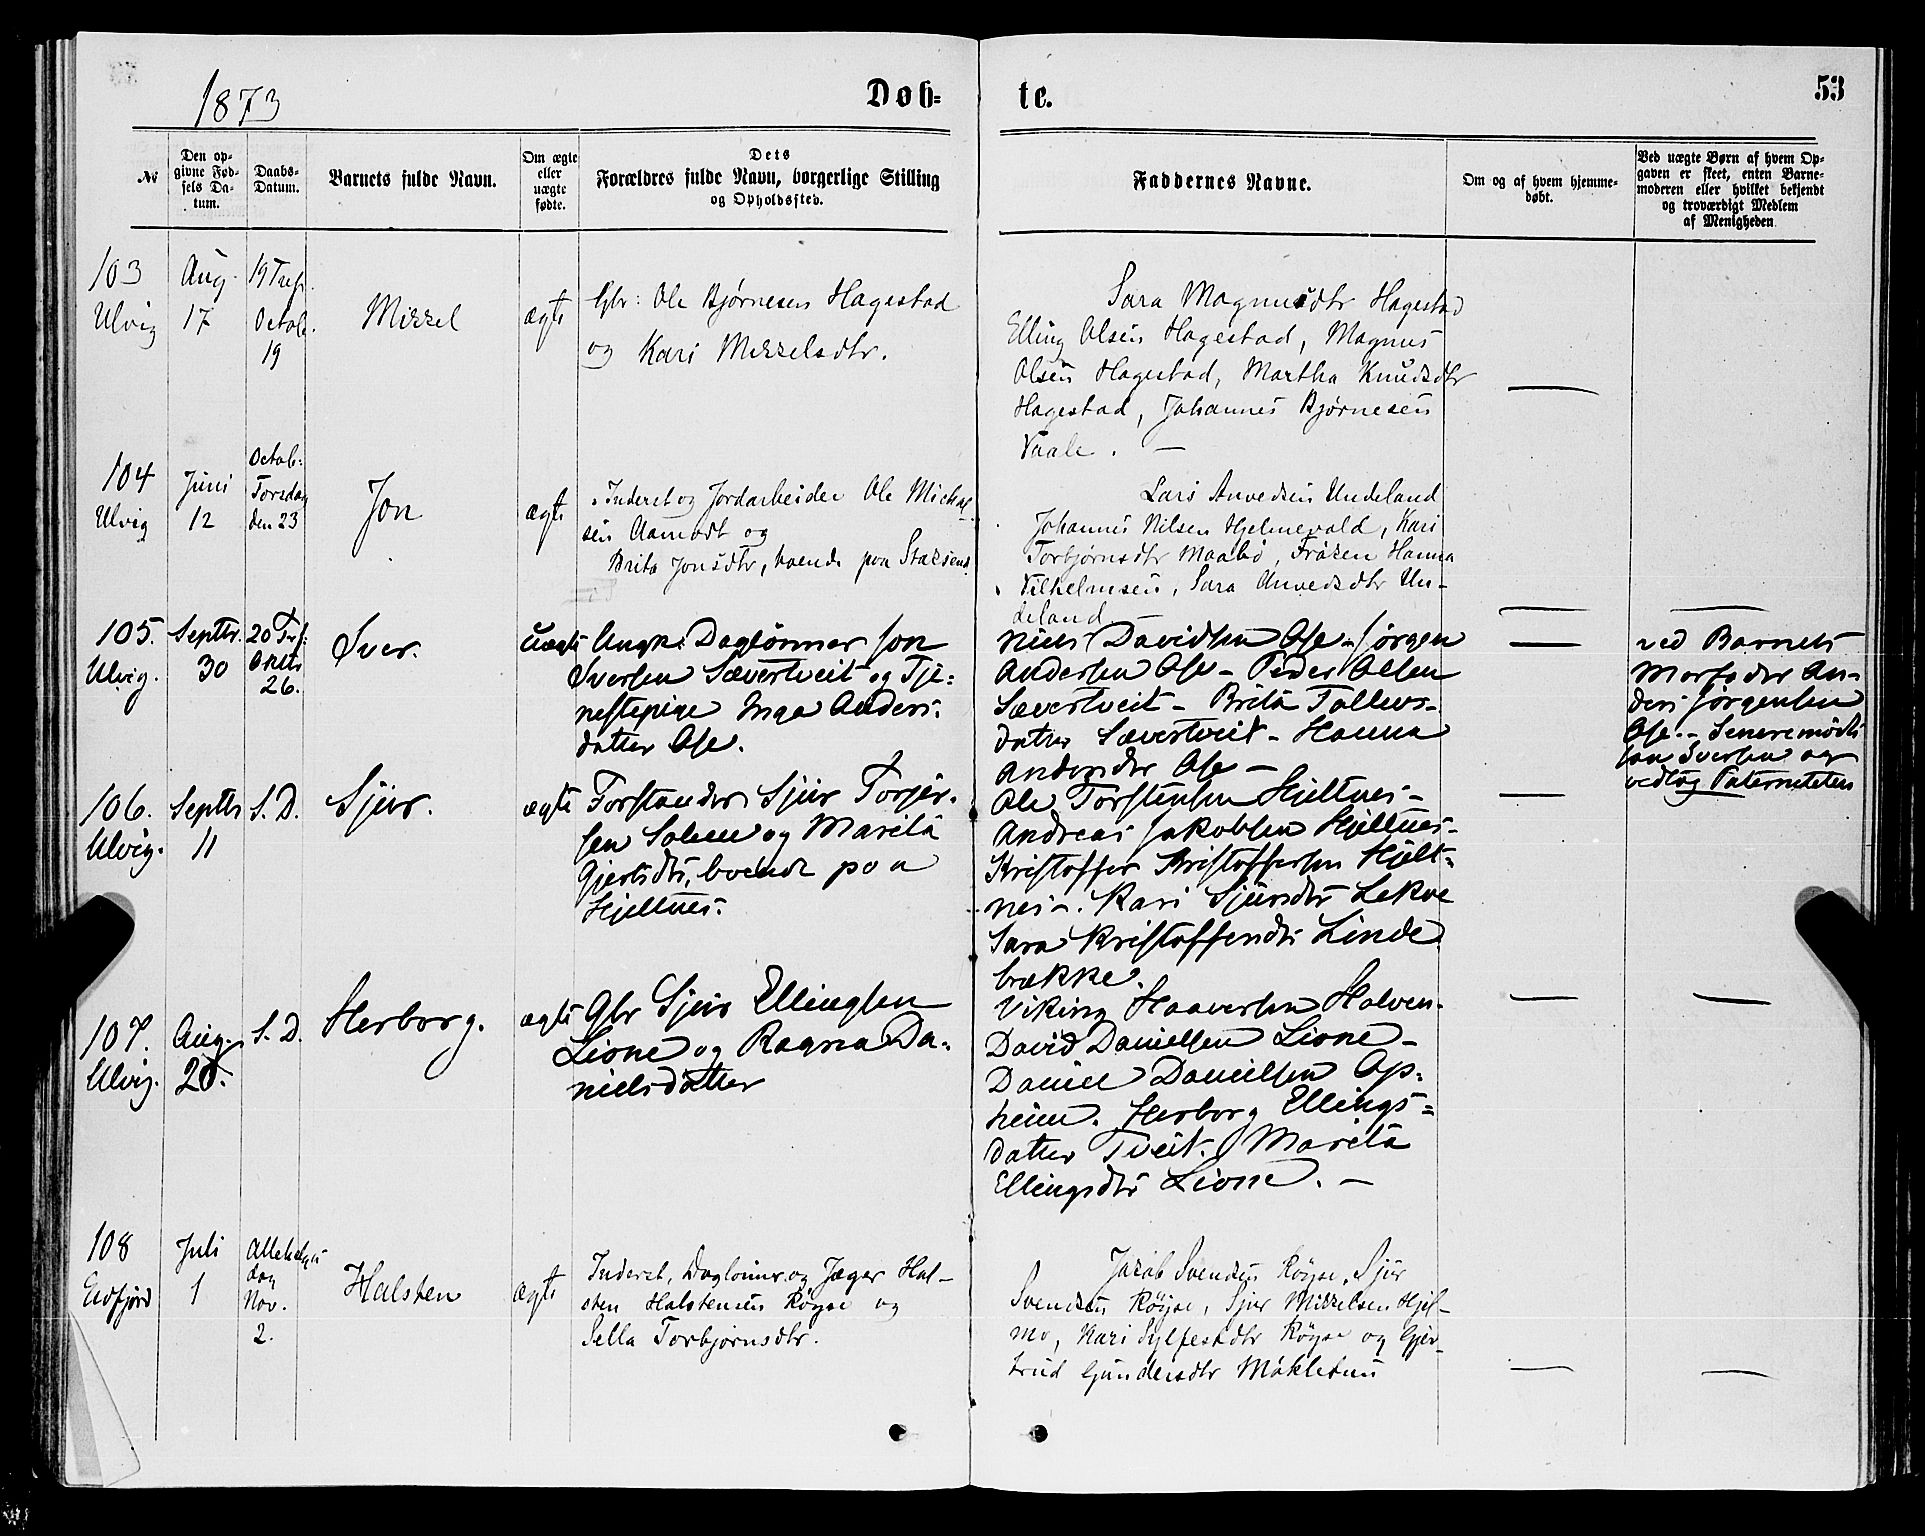 1873
Døb-
te.
53
№
Den op-
givne Fød-
sels Da-
tum.
Daabs-
Datum.
Barnets fulde Navn.
Om ægte
eller
uægte
fødte.
Dets
Forældres fulde Navn, borgerlige Stilling
og Opholdssted.
Faddernes Navne.
Om og af hvem hjemme-
døbt.
Ved uægte Børn af hvem Op-
gaven er skeet, enten Barne-
moderen eller hvilket bekjendt
og troværdigt Medlem
af Menigheden
103
Ulvig
Aug.
17
19 Tref.
Octob.
19
Mikkel
ægte
Gbr: Ole Bjørnesen Hagestad
og Kari Mikkelsdtr.
Sara Magnusdtr Hagestad
Elling Olsen Hagestad, Magnus
Olsen Hagestad, Martha Knudsdtr
Hagestad, Johannes Bjørnesen
Vaale. —
104
Ulvig
Juni
12
Octob:
Torsdag
den 23
Jon
ægte
Inderst og Jordarbeider Ole Michel-
sen Aamodt og
Brita Jonsdtr, boende paa
Lars Anvedsen Undeland
Johannes Nilsen Hjelmevold, Kari
Torbjørnsdtr Maabø, Frøken Hanna
Vilhelmsen, Sara Anvedsdtr Un-
deland —
105.
Ulvig.
Septbr.
30
20 Tref:
Oktbr
26.
Iver.
Uægte
Ungk: Daglønner Jon
Iversen Sævertveit og Tje-
nestepige Inga Anders-
datter Ose.
Niels Davidsen Ose - Jørgen
Andersen Ose - Peder Olsen
Sævertveit - Brita Tollevs-
datter Sævertveit - Hanna
Andersdtr Ose -
ved Barnets
Morfader An-
ders Jørgensen
Ose. - Senere mødte
Jon Iversen og
vedtog Paterniteten
106.
Ulvig.
Septbr
11
S. D.
Sjur.
ægte
Forstander Sjur Torger-
sen Solem og Marita
Gjertsdtr, boende paa
Hjeltnes.
Ole Torstensen Hjeltnes -
Andreas Jakobsen Hjeltnes -
Kristoffer Kristoffersen Hjelt-
nes -. Kari Sjursdtr Lekve
Sara Kristoffersdtr Linde
brække.
107.
Ulvig.
Aug.
20.
S. D.
Herborg.
ægte
Gbr Sjur Ellingsen
Lione og Ragna Da-
nielsdatter
Viking Haaversen Holven.
David Danielsen Lione -
Daniel Danielsen Op-
heim. Herborg Ellings-
datter Tveit. Marita
Ellingsdtr Lione. —
108
Eidfjord
Juli
1
Allehelgens
dag
Nov.
2.
Halsten
ægte
Inderst, Daglønner og Jæger Hal-
sten Halstensen Røyse og
Sella Torbjørnsdtr.
Jakob Svendsen Røyse, Sjur
Svendsen Røyse, Sjur Mikkelsen Hjel-
mo, Kari Sylfestdtr Røyse og Gjer-
trud Gundersdtr Møkletun